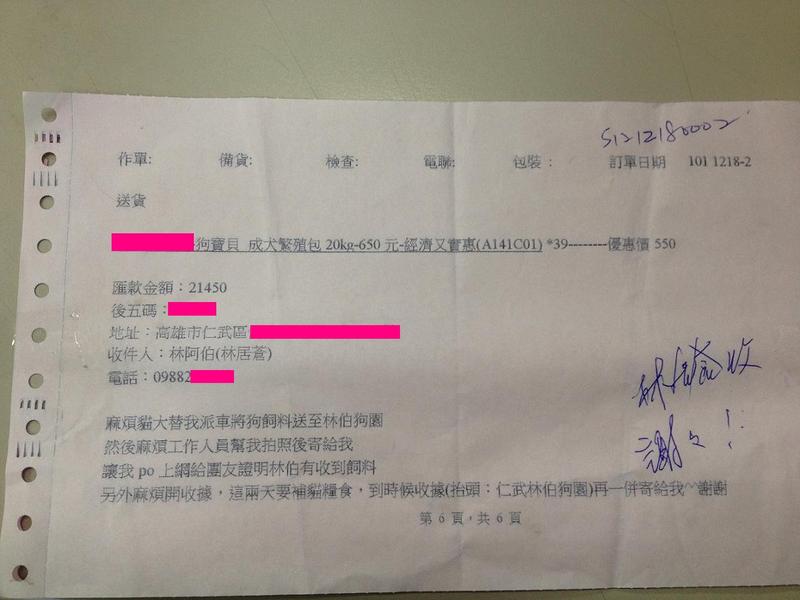 S1212180002
作單: 備貨: 檢查: 電聯: 包裝 : 訂單日期 101 1218-2
送貨
狗寶貝 成犬繁殖包 20kg-650 元-經濟又實惠(A141C01) *39--------優惠價 550
匯款金額：21450
後五碼：
地址：高雄市仁武區
收件人：林阿伯(林居蒼)
電話：09882
林居蒼收
謝々！
麻煩貓大替我派車將狗飼料送至林伯狗園
然後麻煩工作人員幫我拍照後寄給我
讓我 po 上網給團友證明林伯有收到飼料
另外麻煩開收據，這兩天要補貓糧食，到時候收據(抬頭：仁武林伯狗園)再一併寄給我^^謝謝
第 6 頁，共 6 頁